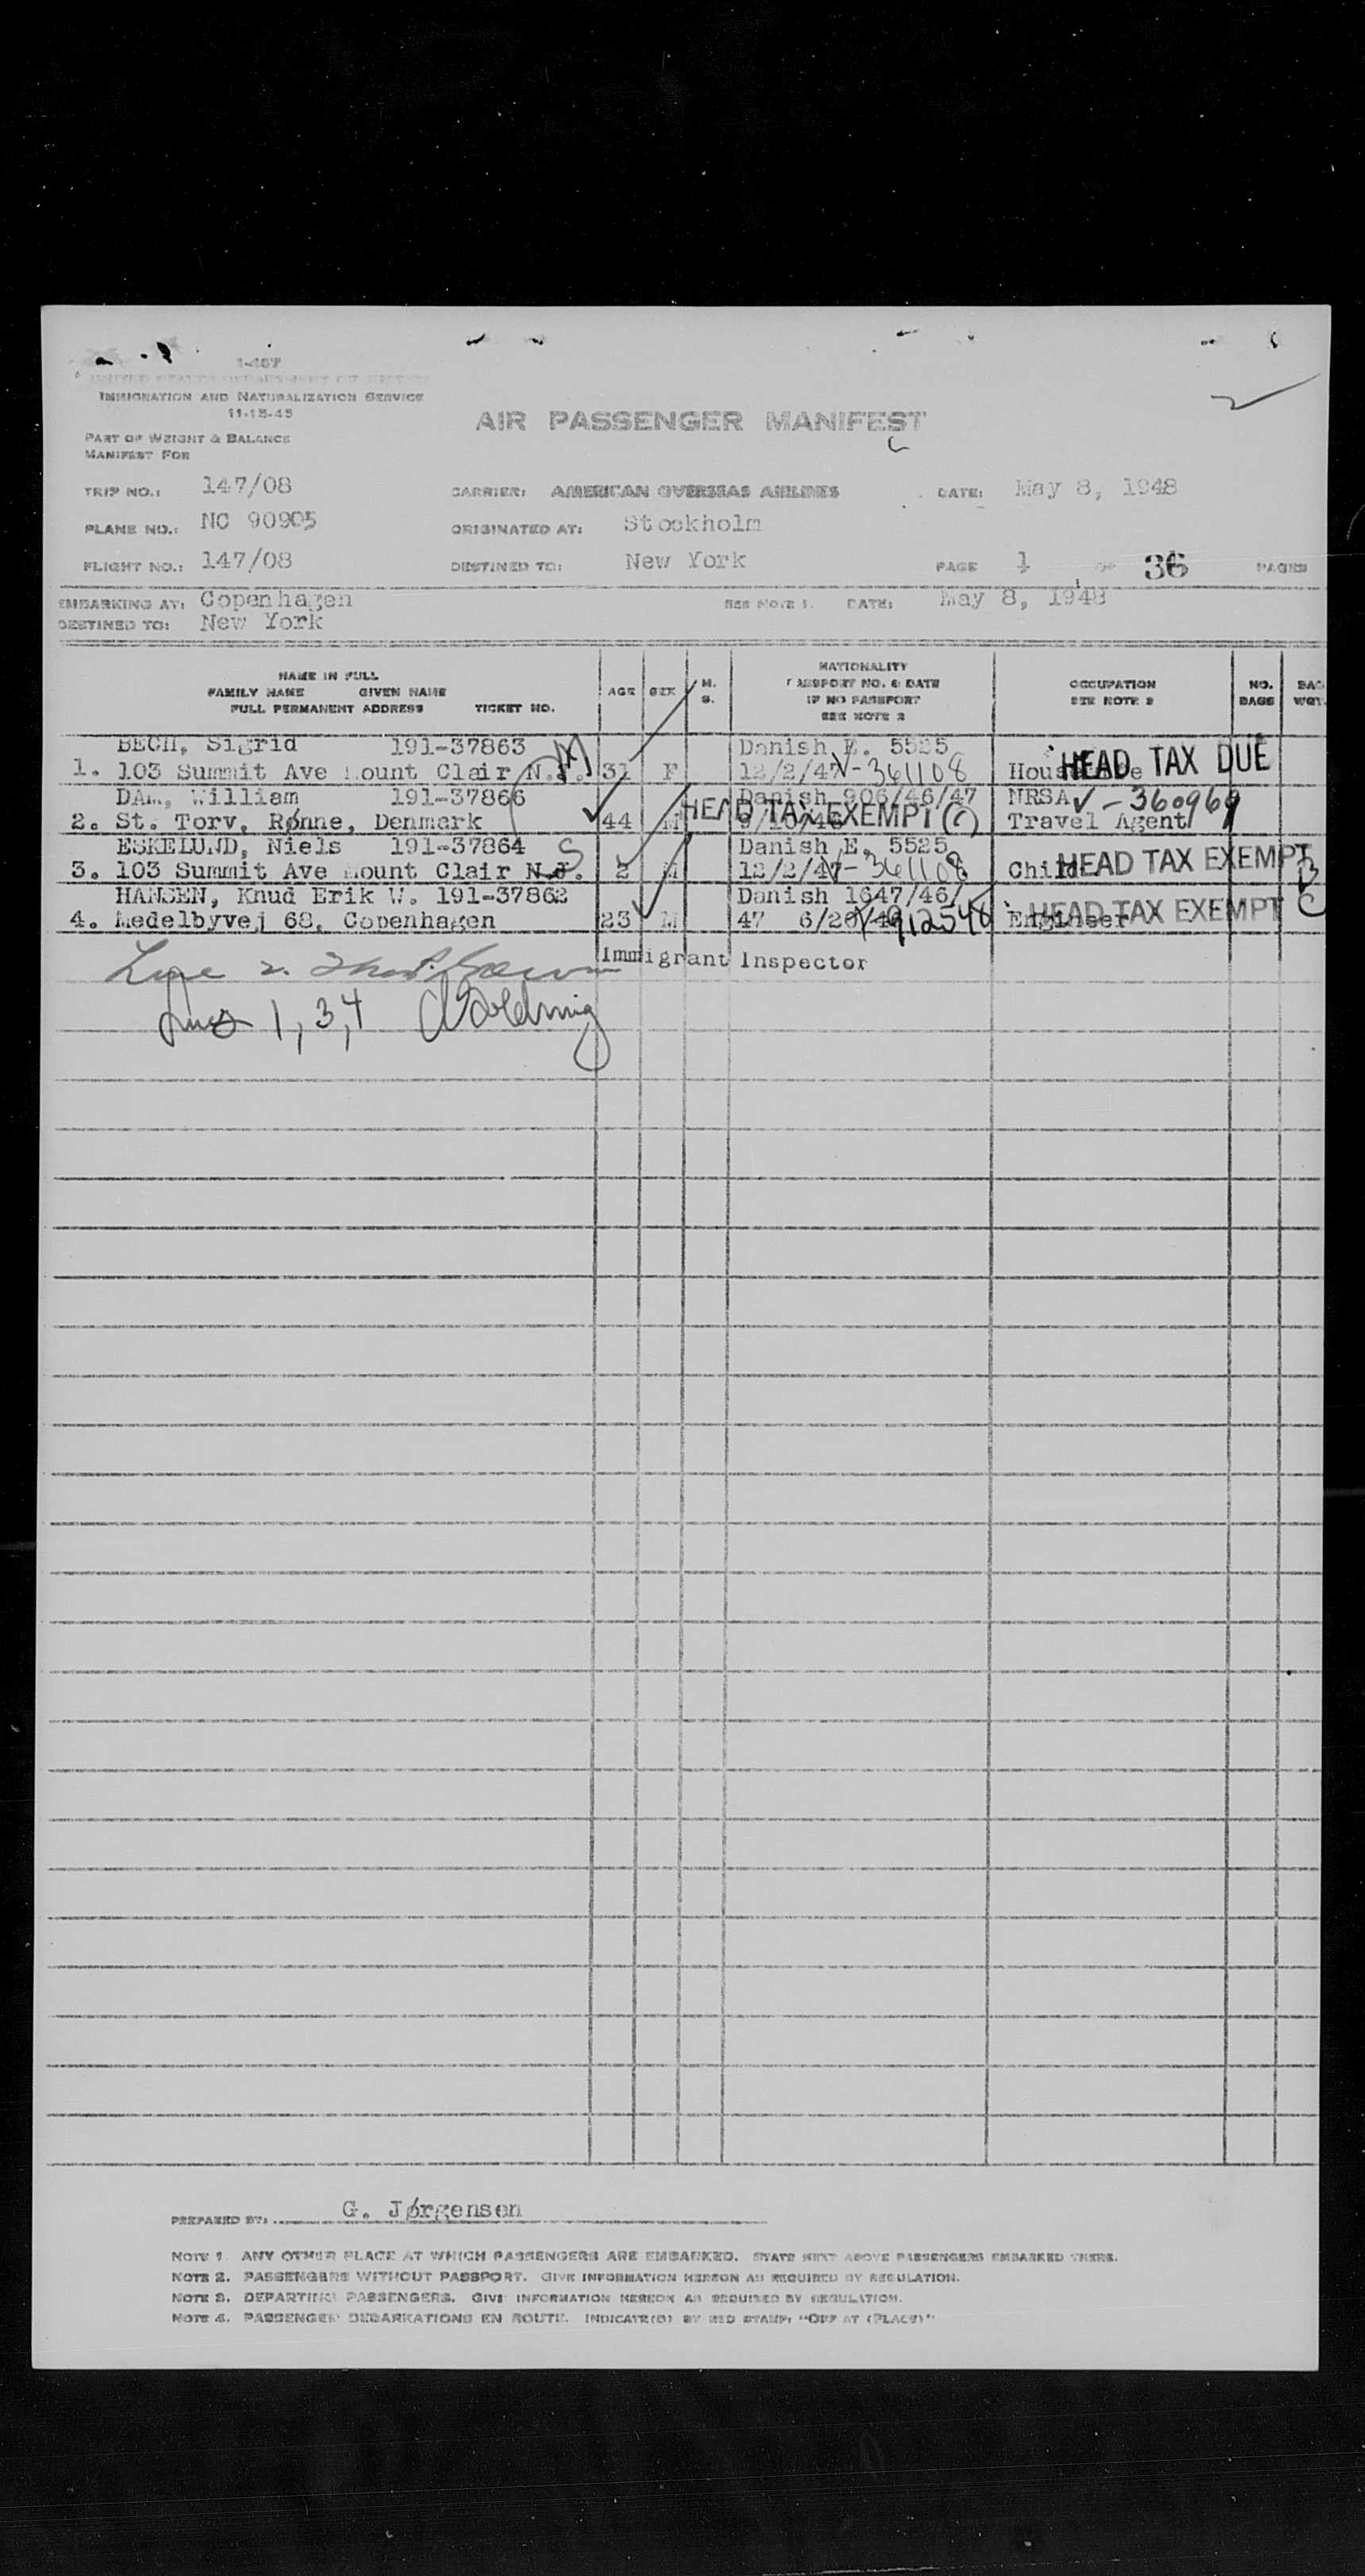 I-467
UNITED STATES DEPARTMENT OF JUSTICE
IMMIGRATION AND NATURALIZATION SERVICE
11-15-45
AIR PASSENGER MANIFEST
PART OF WEIGHT & BALANCE
MANIFEST FOR
TRIP NO.: 147/08 CARRIER: AMERICAN OVERSEAS AIRLINES DATE: May 8, 1948
PLANE NO.: NC 90905 ORIGINATED AT: Stockholm
FLIGHT NO.: 147/08 DESTINED TO: New York PAGE 1 OF 36 PAGES
EMBARKING AT: Copenhagen SEE NOTE 1. DATE: May 8, 1948
DESTINED TO: New York
NAME IN FULL
FAMILY NAME GIVEN NAME
FULL PERMANENT ADDRESS TICKET NO. AGE SEX M. S. NATIONALITY
PASSPORT NO. & DATE
IF NO PASSPORT
SEE NOTE 2 OCCUPATION
SEE NOTE 3 NO. BAGS BAG WGT.
BECH, Sigrid 191-37863 M Danish E. 5525 HEAD TAX DUE
1. 103 Summit Ave Mount Clair N.J. 31 F 12/2/47 V-361108 Housewife
DAM, William 191-37866 Danish 906/46/47 NRSA V-360969
2. St. Torv, Rønne, Denmark 44 M HEAD TAX EXEMPT (C) Travel Agent
ESKELUND, Niels 191-37864 S Danish E. 5525 HEAD TAX EXEMPT B
3. 103 Summit Ave Mount Clair N.J. 2 M 12/2/47 V-361108 Child
HANSEN, Knud Erik W. 191-37862 Danish 1647/46/ HEAD TAX EXEMPT C
4. Medelbyvej 68, Copenhagen 23 M 47 Engineer
Line 2. Immigrant Inspector
Lines 1, 3, 4
PREPARED BY: G. Jørgensen
NOTE 1. ANY OTHER PLACE AT WHICH PASSENGERS ARE EMBARKED. STATE NEXT ABOVE PASSENGERS EMBARKED THERE.
NOTE 2. PASSENGERS WITHOUT PASSPORT. GIVE INFORMATION HEREON AS REQUIRED BY REGULATION.
NOTE 3. DEPARTING PASSENGERS. GIVE INFORMATION HEREON AS REQUIRED BY REGULATION.
NOTE 4. PASSENGER DEBARKATIONS EN ROUTE. INDICATE(D) BY RED STAMP: "OFF AT (PLACE)"